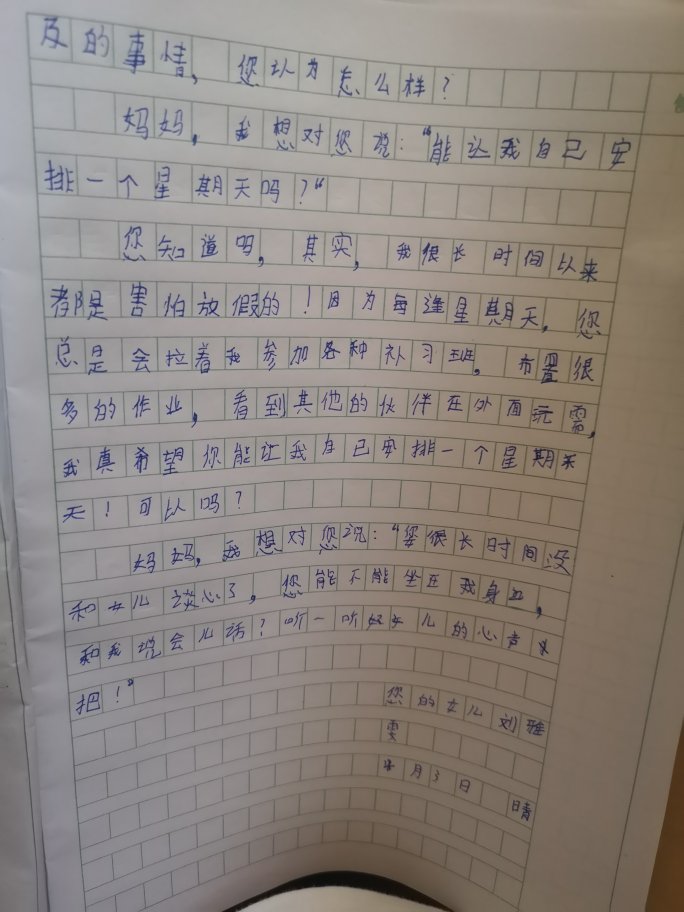 及的事情，您认为怎么样？
妈妈，我想对您说：“能让我自己安
排一个星期天吗？“
您知道吗，其实，我很长时间以来
都是害怕放假的！因为每逢星期天，您
总是会拉着我参加各种补习班，布置很
多的作业，看到其他的伙伴在外面玩雪，
我真希望你能让我自己安排一个星期天
天！可以吗？
妈妈，我想对您说：“您很长时间没
和女儿谈心了，您能不能坐在我身边，
和我说会儿话？听一听好女儿的心声
把！”
您的女儿刘雅
雯
月3日 晴